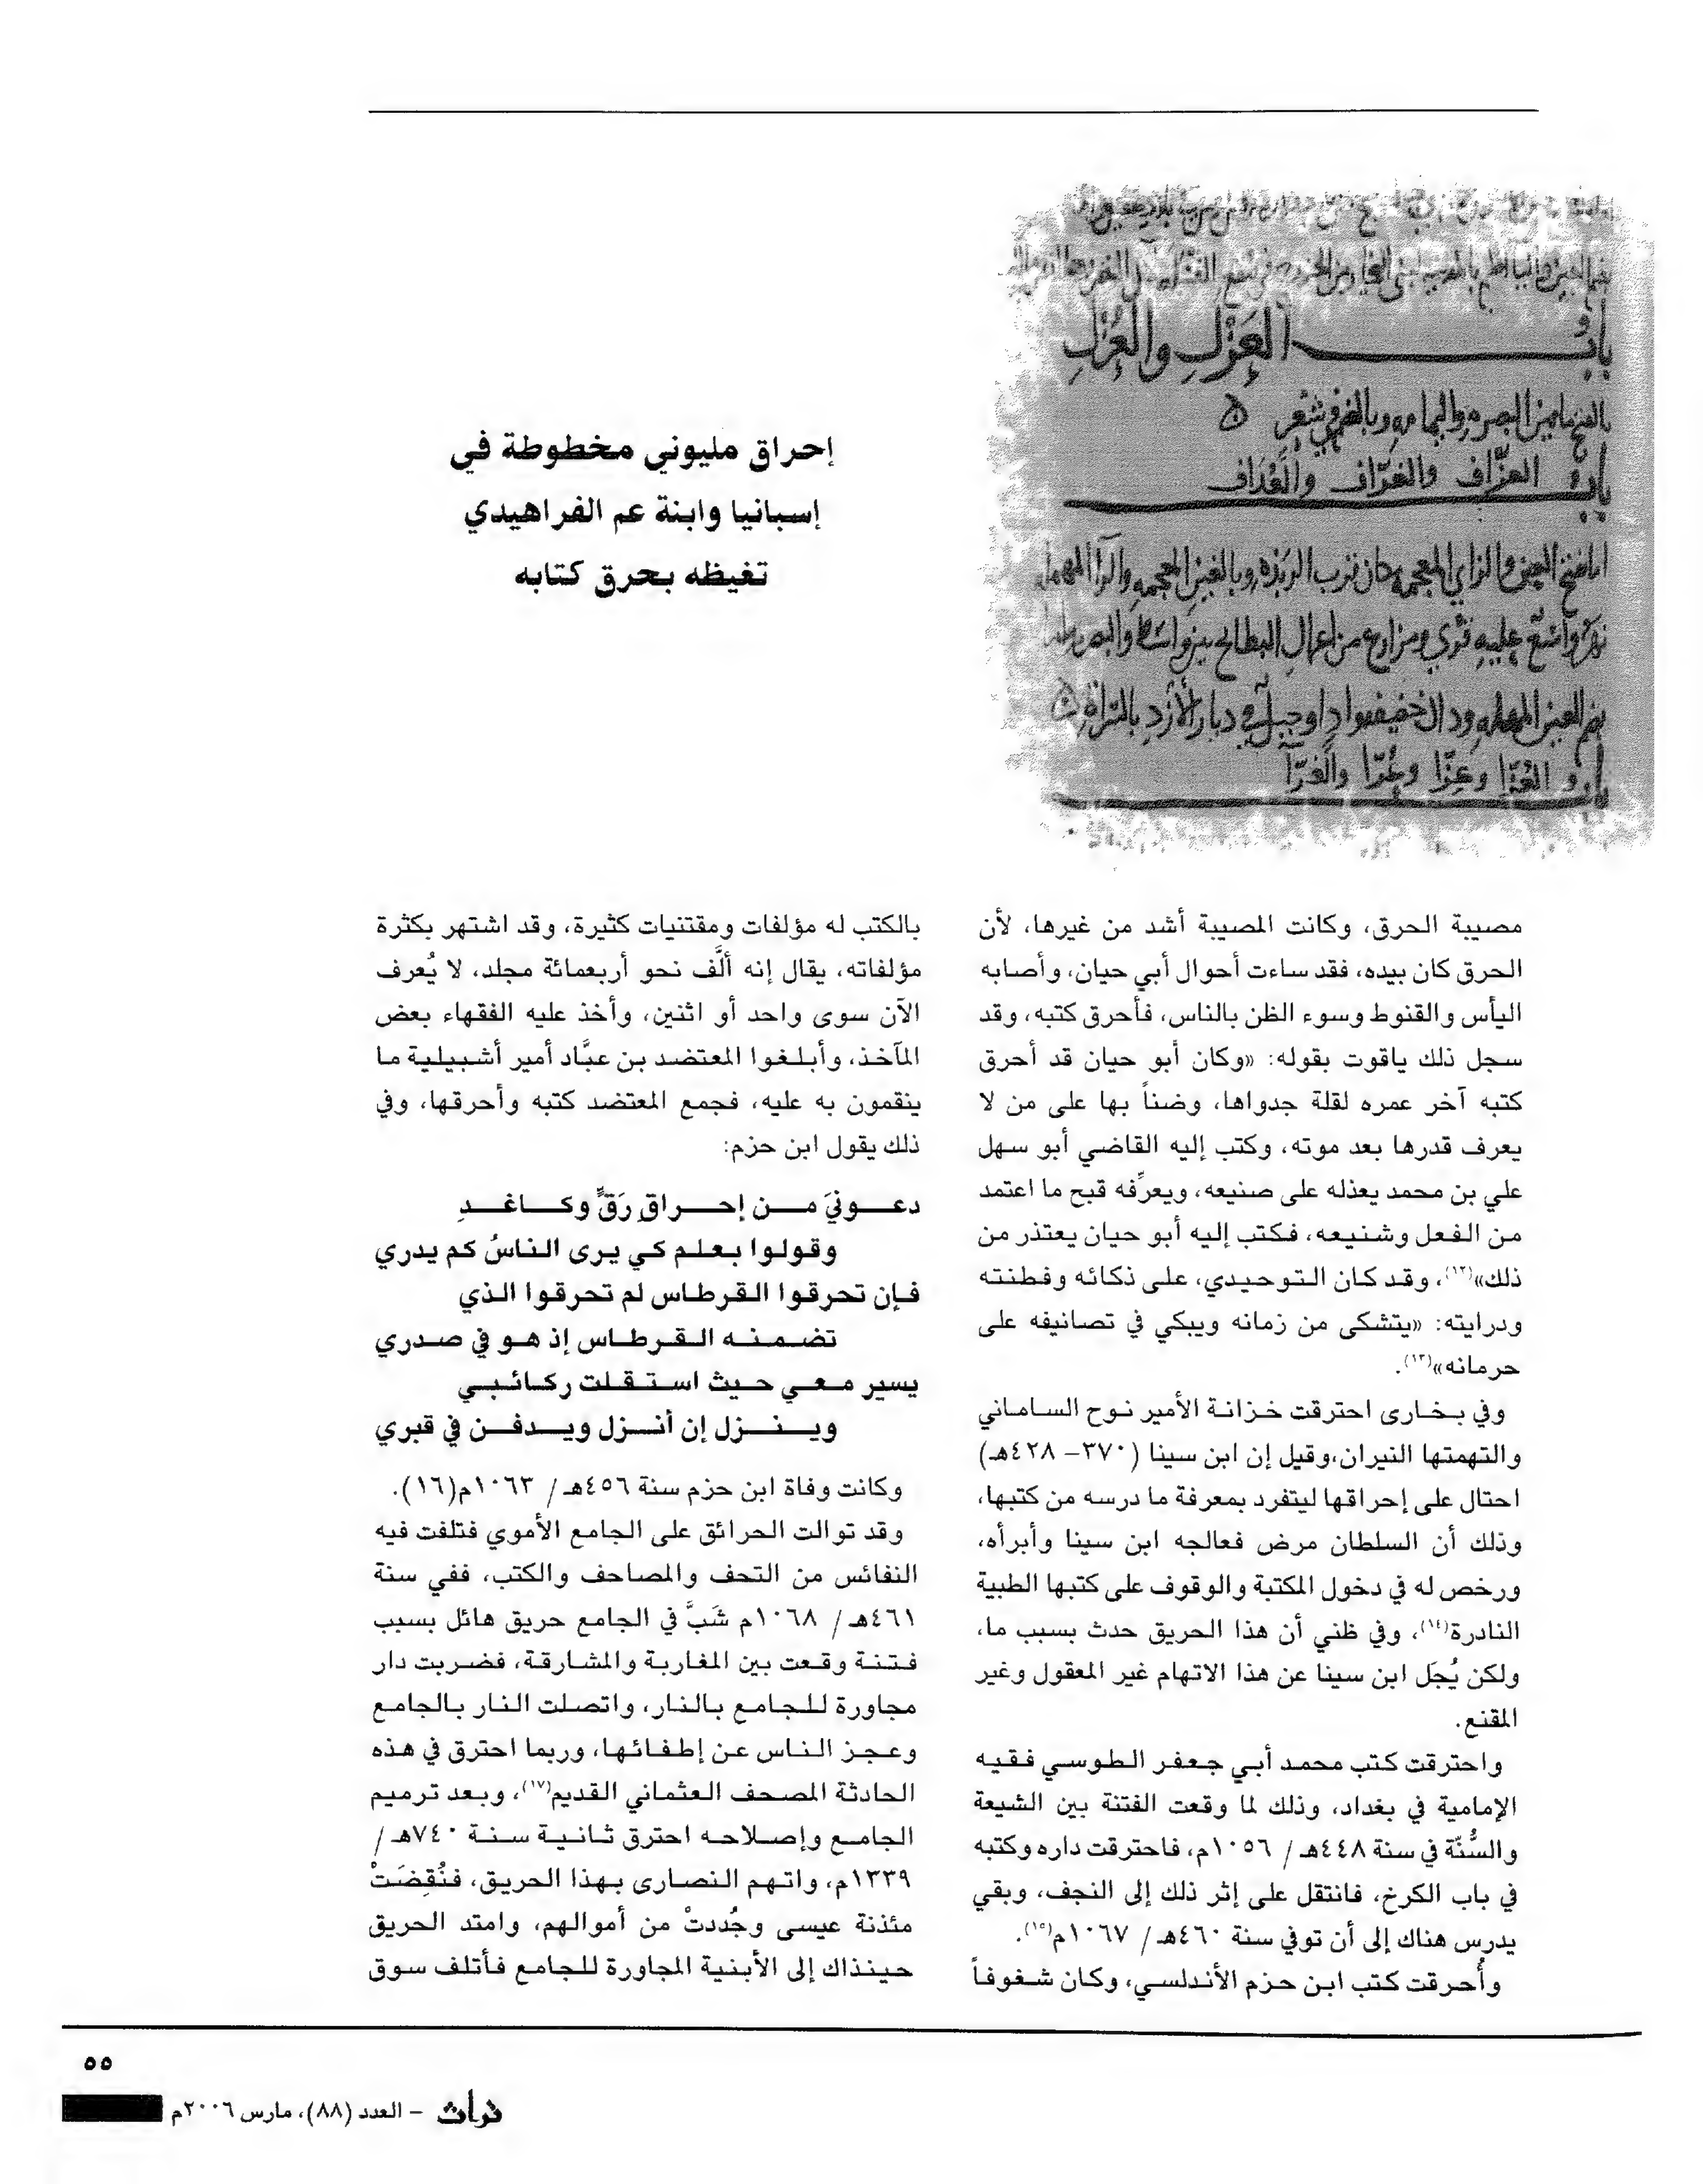 باب العَزْلِ والغَزْلِ
باب العزّاف والغرّاف والعُداف
إحراق مليوني مخطوطة في
إسبانيا وابنة عم الفراهيدي
تغيظه بحرق كتابه
مصيبة الحرق، وكانت المصيبة أشد من غيرها، لأن
الحرق كان بيده، فقد ساءت أحوال أبي حيان، وأصابه
اليأس والقنوط وسوء الظن بالناس، فأحرق كتبه، وقد
سجل ذلك ياقوت بقوله: «وكان أبو حيان قد أحرق
كتبه آخر عمره لقلة جدواها، وضناً بها على من لا
يعرف قدرها بعد موته، وكتب إليه القاضي أبو سهل
علي بن محمد يعذله على صنيعه، ويعرِّفه قبح ما اعتمد
من الفعل وشنيعه، فكتب إليه أبو حيان يعتذر من
ذلك»(١٢)، وقد كان التوحيدي، على ذكائه وفطنته
ودرايته: «يتشكى من زمانه ويبكي في تصانيفه على
حرمانه»(١٣).
وفي بخارى احترقت خزانة الأمير نوح الساماني
والتهمتها النيران،وقيل إن ابن سينا (٣٧٠– ٤٢٨هـ)
احتال على إحراقها ليتفرد بمعرفة ما درسه من كتبها،
وذلك أن السلطان مرض فعالجه ابن سينا وأبرأه،
ورخص له في دخول المكتبة والوقوف على كتبها الطبية
النادرة(١٤)، وفي ظني أن هذا الحريق حدث بسبب ما،
ولكن يُجَل ابن سينا عن هذا الاتهام غير المعقول وغير
المقنع.
واحترقت كتب محمد أبي جعفر الطوسي فقيه
الإمامية في بغداد، وذلك لما وقعت الفتنة بين الشيعة
والسُّنّة في سنة ٤٤٨هـ / ١٠٥٦م، فاحترقت داره وكتبه
في باب الكرخ، فانتقل على إثر ذلك إلى النجف، وبقي
يدرس هناك إلى أن توفي سنة ٤٦٠هـ / ١٠٦٧م(١٥).
وأُحرقت كتب ابن حزم الأندلسي، وكان شغوفاً
بالكتب له مؤلفات ومقتنيات كثيرة، وقد اشتهر بكثرة
مؤلفاته، يقال إنه ألَّف نحو أربعمائة مجلد، لا يُعرف
الآن سوى واحد أو اثنين، وأخذ عليه الفقهاء بعض
المآخذ، وأبلغوا المعتضد بن عبَّاد أمير أشبيلية ما
ينقمون به عليه، فجمع المعتضد كتبه وأحرقها، وفي
ذلك يقول ابن حزم:
دعونيَ من إحراقِ رَقٍّ وكاغدِ
وقولوا بعلم كي يرى الناسُ كم يدري
فإن تحرقوا القرطاس لم تحرقوا الذي
تضمنه القرطاس إذ هو في صدري
يسير معي حيث استقلت ركائبي
وينزل إن أنزل ويدفن في قبري
وكانت وفاة ابن حزم سنة ٤٥٦هـ / ١٠٦٣م(١٦).
وقد توالت الحرائق على الجامع الأموي فتلفت فيه
النفائس من التحف والمصاحف والكتب، ففي سنة
٤٦١هـ / ١٠٦٨م شَبَّ في الجامع حريق هائل بسبب
فتنة وقعت بين المغاربة والمشارقة، فضربت دار
مجاورة للجامع بالنار، واتصلت النار بالجامع
وعجز الناس عن إطفائها، وربما احترق في هذه
الحادثة المصحف العثماني القديم(١٧)، وبعد ترميم
الجامع وإصلاحه احترق ثانية سنة ٧٤٠هـ /
١٣٣٩م، واتهم النصارى بهذا الحريق، فنُقِضَتْ
مئذنة عيسى وجُددتْ من أموالهم، وامتد الحريق
حينذاك إلى الأبنية المجاورة للجامع فأتلف سوق
٥٥
تراث – العدد (٨٨)، مارس ٢٠٠٦م